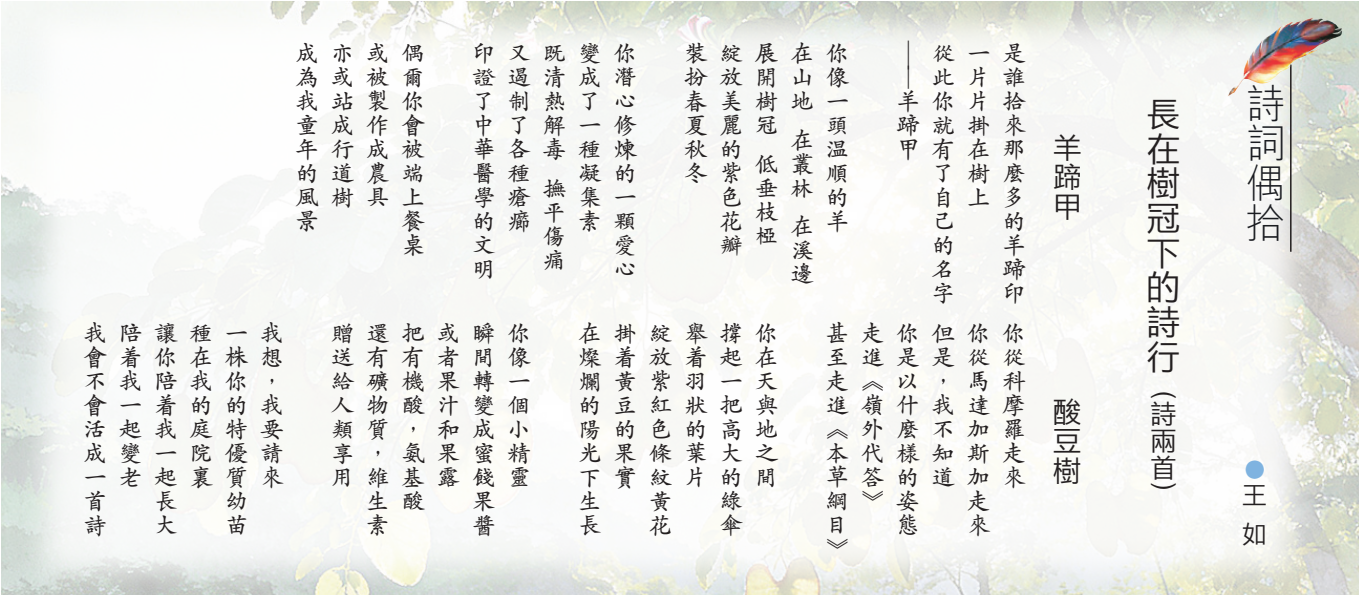 詩詞偶拾
長在樹冠下的詩行（詩兩首）
●王 如
羊蹄甲
是誰拾來那麼多的羊蹄印
一片片掛在樹上
從此你就有了自己的名字
——羊蹄甲
你像一頭温順的羊
在山地 在叢林 在溪邊
展開樹冠 低垂枝椏
綻放美麗的紫色花瓣
裝扮春夏秋冬
你潛心修煉的一顆愛心
變成了一種凝集素
既清熱解毒 撫平傷痛
又遏制了各種瘡癤
印證了中華醫學的文明
偶爾你會被端上餐桌
或被製作成農具
亦或站成行道樹
成為我童年的風景
酸豆樹
你從科摩羅走來
你從馬達加斯加走來
但是，我不知道
你是以什麼樣的姿態
走進《嶺外代答》
甚至走進《本草綱目》
你在天與地之間
撐起一把高大的綠傘
舉着羽狀的葉片
綻放紫紅色條紋黃花
掛着黃豆的果實
在燦爛的陽光下生長
你像一個小精靈
瞬間轉變成蜜餞果醬
或者果汁和果露
把有機酸，氨基酸
還有礦物質，維生素
贈送給人類享用
我想，我要請來
一株你的特優質幼苗
種在我的庭院裏
讓你陪着我一起長大
陪着我一起變老
我會不會活成一首詩